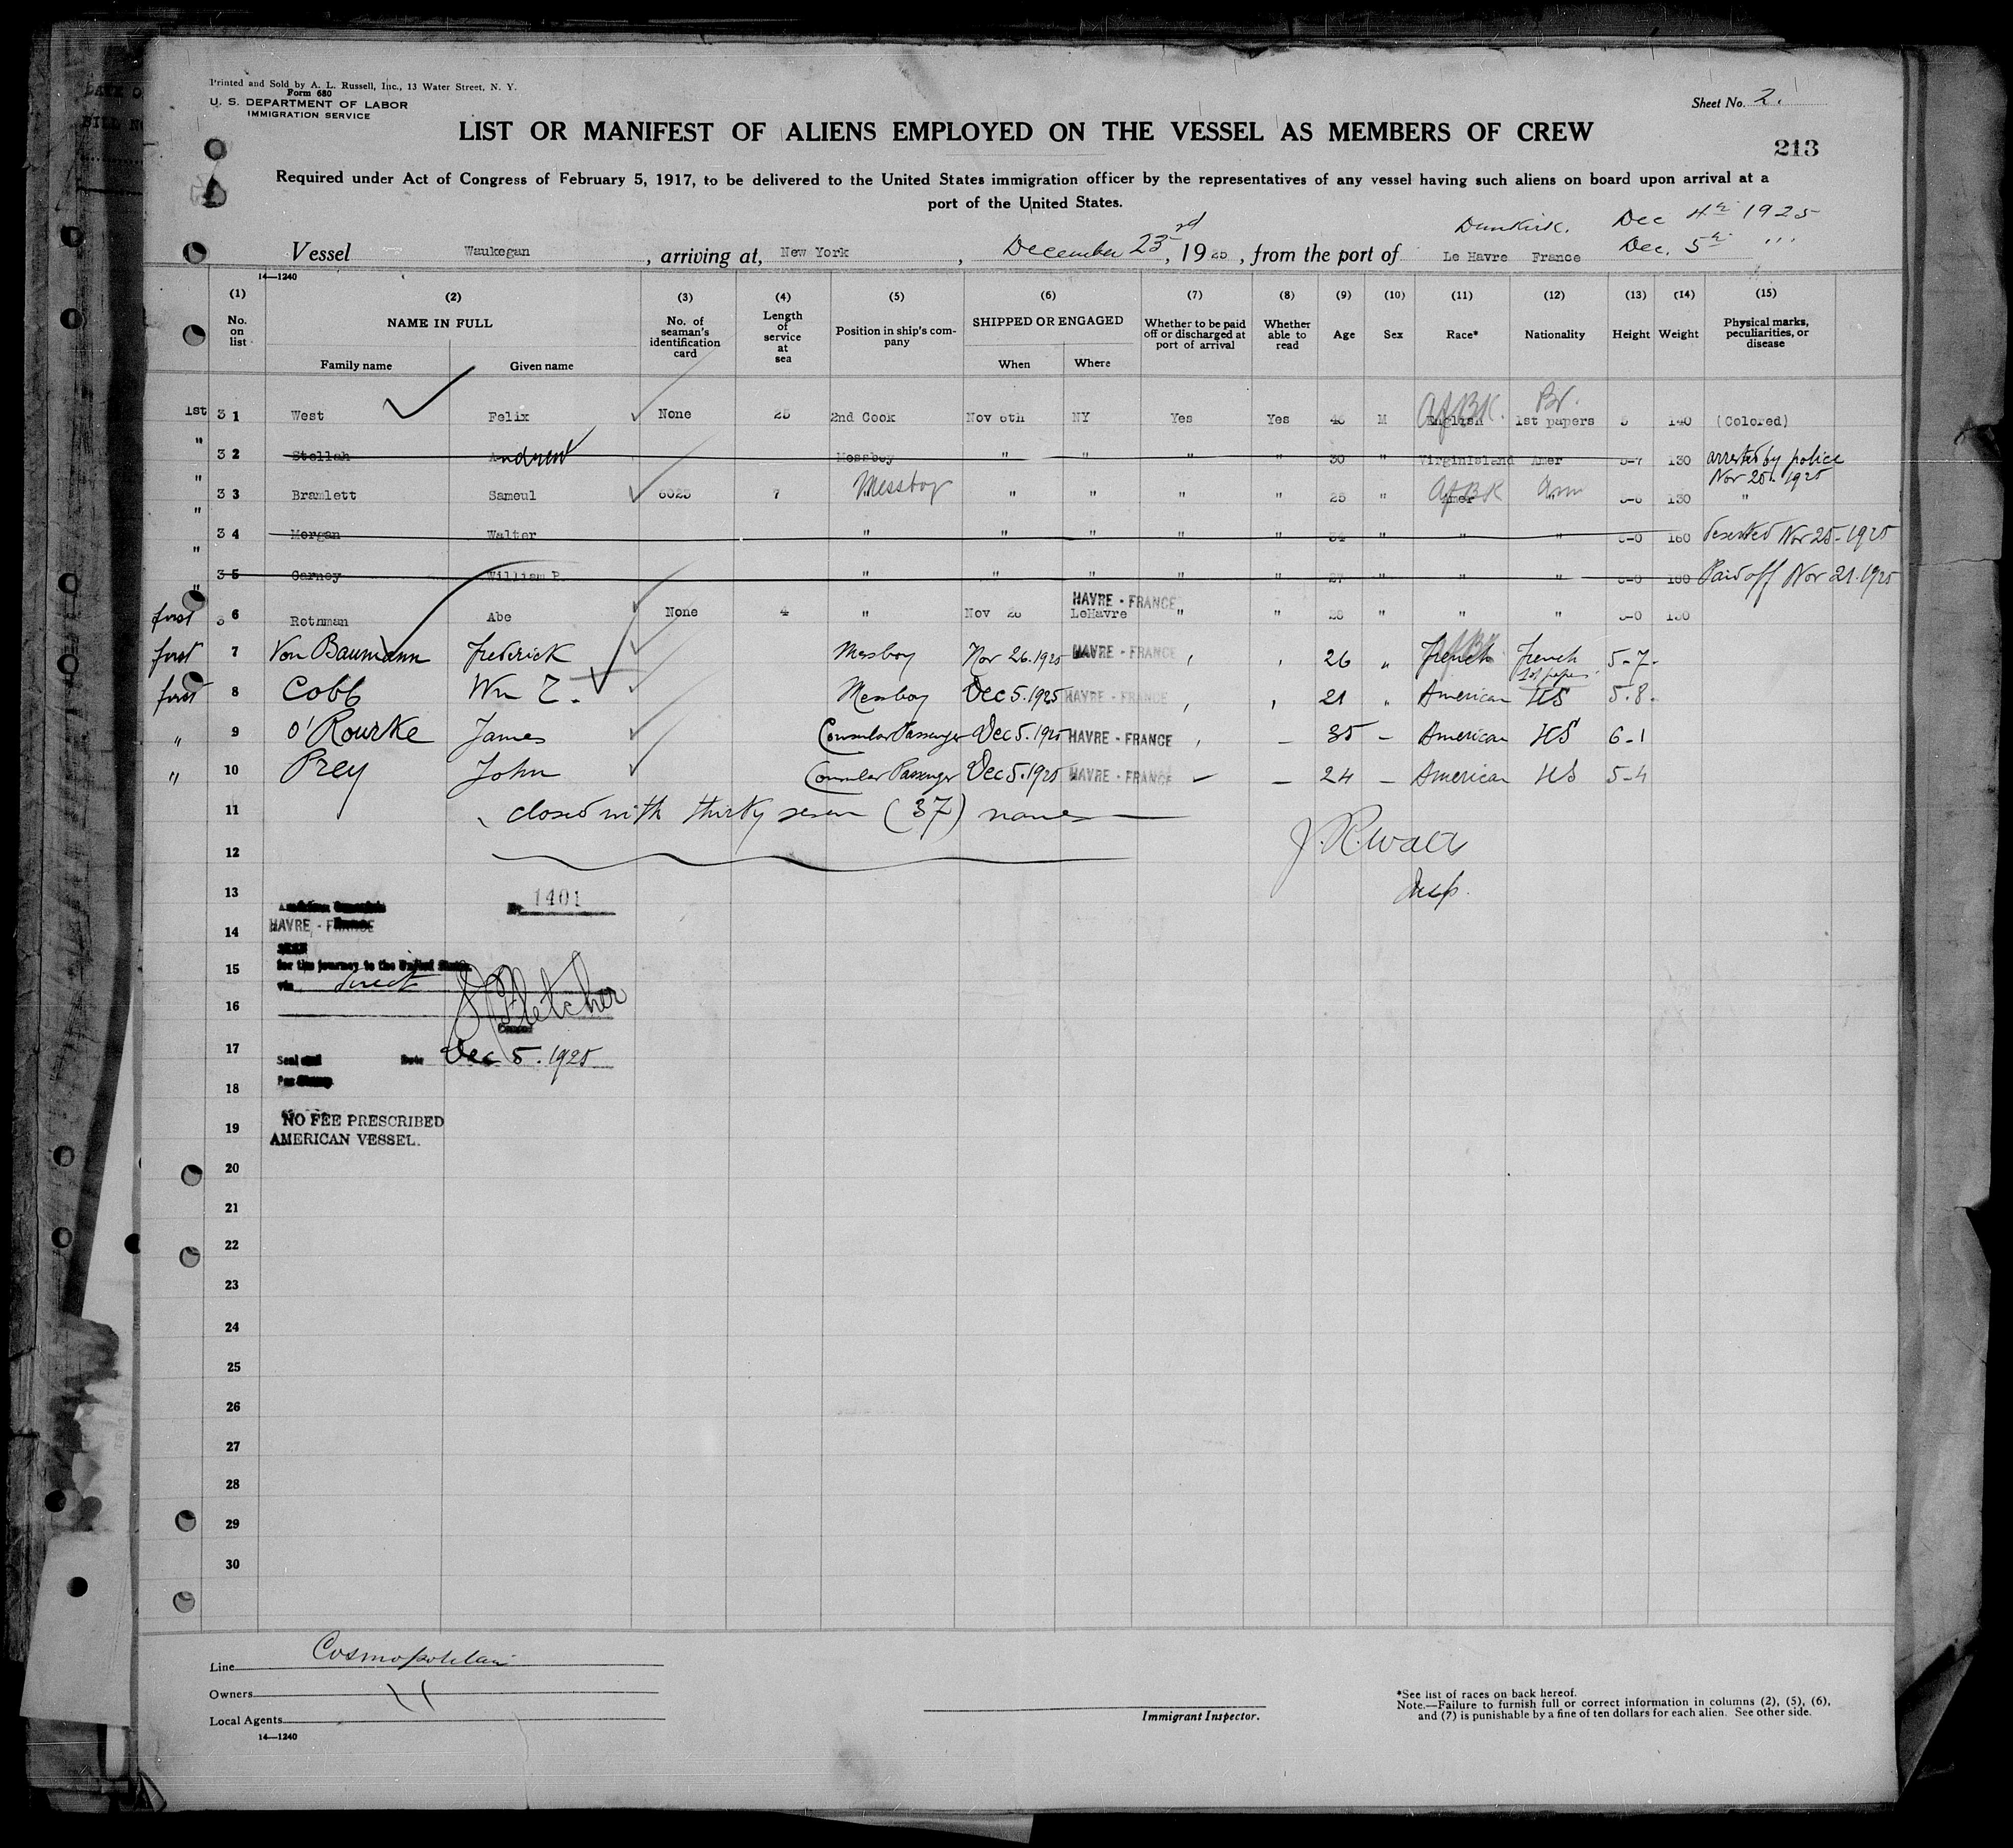 Printed and Sold by A. L. Russell, Inc., 13 Water Street, N. Y.
Form 680
U. S. DEPARTMENT OF LABOR
IMMIGRATION SERVICE
Sheet No. 2.
LIST OR MANIFEST OF ALIENS EMPLOYED ON THE VESSEL AS MEMBERS OF CREW
213
Required under Act of Congress of February 5, 1917, to be delivered to the United States immigration officer by the representatives of any vessel having such aliens on board upon arrival at a
port of the United States.
Dunkirk. Dec 4th 1925
Vessel Waukegan , arriving at, New York , December 23rd , 1925 , from the port of Le Havre France Dec. 5th "
14—1240
(1) (2) (3) (4) (5) (6) (7) (8) (9) (10) (11) (12) (13) (14) (15)
No. on list NAME IN FULL No. of seaman's identification card Length of service at sea Position in ship's company SHIPPED OR ENGAGED Whether to be paid off or discharged at port of arrival Whether able to read Age Sex Race* Nationality Height Weight Physical marks, peculiarities, or disease
Family name Given name When Where
1st 3 1 West Felix None 25 2nd Cook Nov 6th NY Yes Yes 46 M English Af BK. 1st papers Br. 5 140 (Colored)
" 3 2 Stellah Andrew Messboy " " " " 30 " VirginIsland Amer 5-7 130 arrested by police Nov 25. 1925
" 3 3 Bramlett Sameul 6025 7 Messboy " " " " 25 " Amer Af BK Am 5-6 130 "
" 3 4 Morgan Walter " " " " " 34 " " " 6-0 160 deserted Nov 25-1925
" 3 5 Carney William P. " " " " " 27 " " " 6-0 160 Paid off Nov 21. 1925
first " 3 6 Rothman Abe None 4 " Nov 26 HAVRE - FRANCE LeHavre " " 28 " " " 6-0 150
first 7 Von Baumann Frederick Messboy Nov 26.1925 HAVRE - FRANCE " " 26 " French French 1st papers 5-7-
first 8 Cobb Wm T. Messboy Dec 5.1925 HAVRE - FRANCE " " 21 " American US 5.8.
" 9 O'Rourke James Consular Passenger Dec 5.1925 HAVRE - FRANCE " — 35 — American US 6-1
" 10 Prey John Consular Passenger Dec 5.1925 HAVRE - FRANCE — — 24 — American US 5-4
11 closed with thirty seven (37) names
12
J. R. Walls
Insp.
13
1401
14 HAVRE - FRANCE
SEEN
15 for the journey to the United States
via direct
16 Fletcher
Consul
17 Seal and Date Dec 5. 1925
18
19 NO FEE PRESCRIBED
AMERICAN VESSEL.
20
21
22
23
24
25
26
27
28
29
30
Line Cosmopolitan
Owners
Local Agents
14—1240
Immigrant Inspector.
*See list of races on back hereof.
Note.—Failure to furnish full or correct information in columns (2), (5), (6),
and (7) is punishable by a fine of ten dollars for each alien. See other side.